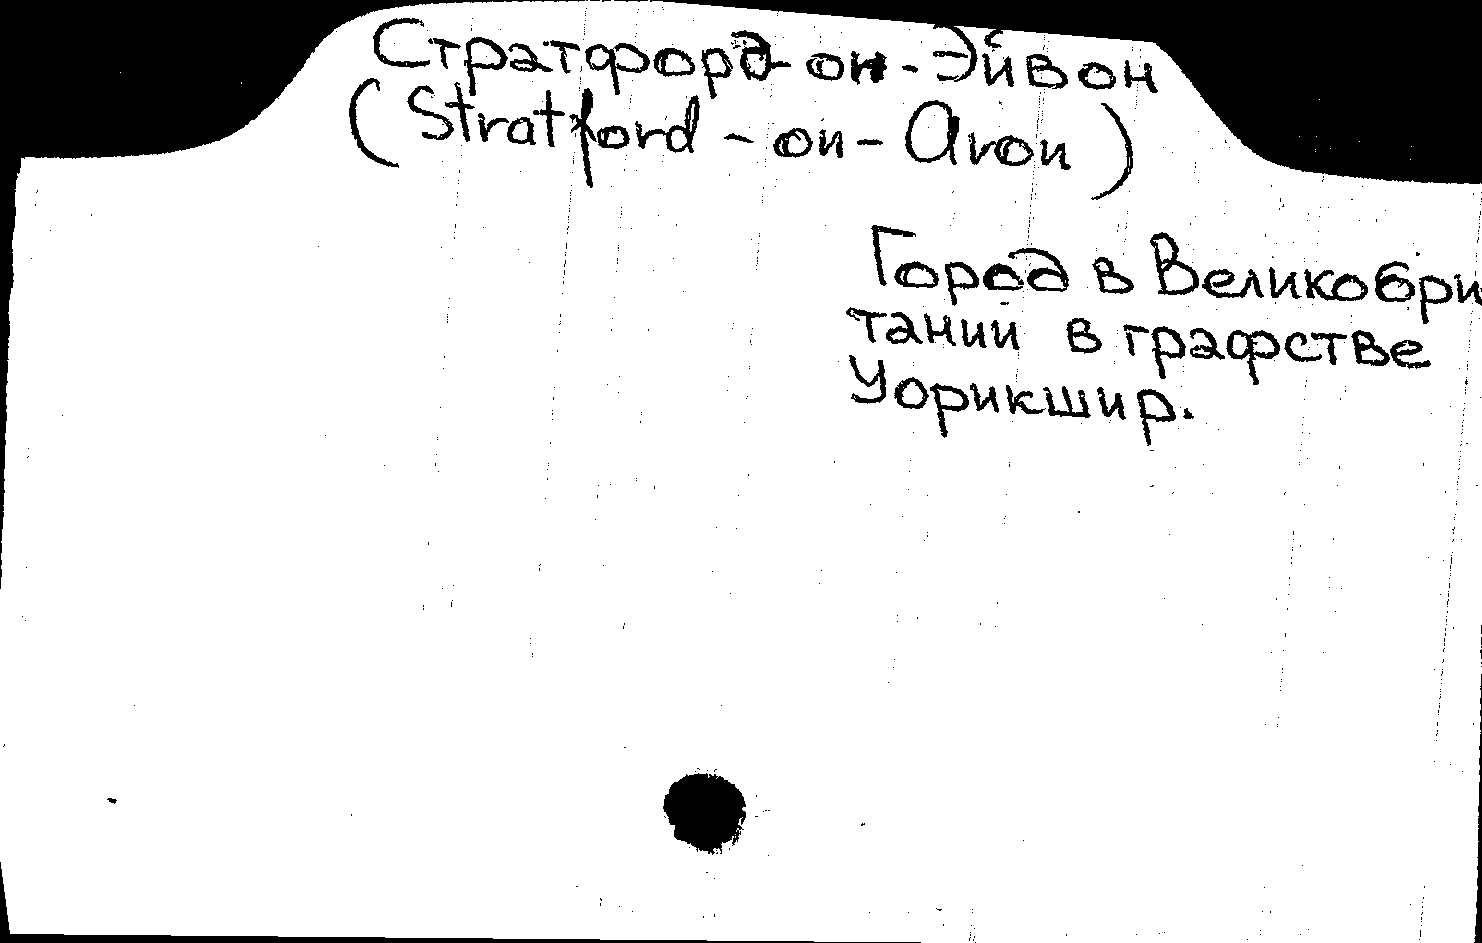 Стратфорд-он-Эйвон
(Stratford-on-Avon)
Город в Великобри
тании в графстве
Уорикшир.